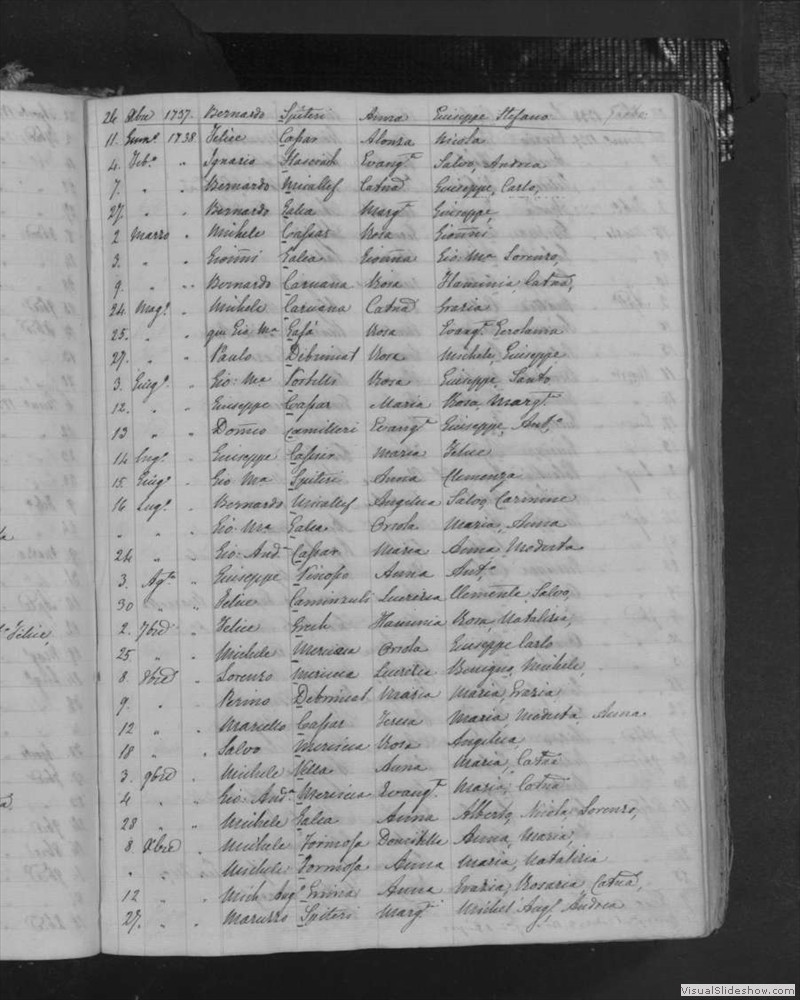 26 Xbre 1737. Bernardo Spiteri Anna Giuseppe Stefano
11. Genn.o 1738 Felice Cassar Alonza Nicola
4. Feb.o " Ignazio Evang.ta Salvo, Andrea
7. " " Bernardo Micallef Catna Giuseppe, Carlo,
27. " " Bernardo Galea Marg.ta Giuseppe,
2 Marzo " Michele Cassar Rosa Gionni
3. " " Gionni Galea Gionna Gio: Ma Lorenzo,
9. " " Bernardo Caruana Rosa Flaminia, Catna,
24. Mag.o " Michele Caruana Catna Grazia
25. " " Gio. Ma Gafá Rosa Evang.ta Gerolama
27. " " Paulo Debrincat Rosa Michele, Giuseppe
3. Giug.o " Gio: Ma Portelli Rosa Giuseppe, Santo
12. " " Giuseppe Cassar Maria Rosa, Marg.ta
13 " " Domco Camilleri Evang.ta Giuseppe, Ant.o
14 Lug.o " Giuseppe Cassar Maria Felice
15 Giug.o " Gio Ma Spiteri Anna Clemenza
16 Lug.o " Bernardo Micallef Angelica Salvo, Carmine
" " " Gio: Ma Galea Orsola Maria, Anna
24 " " Gio: And. Cassar Maria Anna Modesta
3. Ag.to " Giuseppe Anna Ant.o
30 " " Felice Lucrezia Clemente, Salvo,
2. 7bre " Felice Grech Flaminia Rosa, Natalizia,
25. " " Michele Mercieca Orsola Giuseppe Carlo
8. 8bre " Lorenzo Mercieca Lucrezia Benigna, Michele,
9. " Perino Debrincat Maria Maria, Grazia,
12 " " Marcello Cassar Teresa Maria Modesta, Anna
18 " " Salvo Mercieca Rosa Angelica,
3. 9bre . Michele Vella Anna Maria, Catna
4 " " Gio. And.a Mercieca Evang.ta Maria, Catna
28 " " Michele Galea Anna Alberto, Nicola, Lorenzo,
8. Xbre " Michele Formosa Domitilla Anna, Maria,
" " Michele Formosa Anna Maria, Natalizia
12 " " Mich. Ang.o Anna Grazia, Rosaria, Catna,
27. " " Maruzzo Spiteri Marg.ta Michel' Ang.o Andrea
Felice,
VisualSlideshow.com